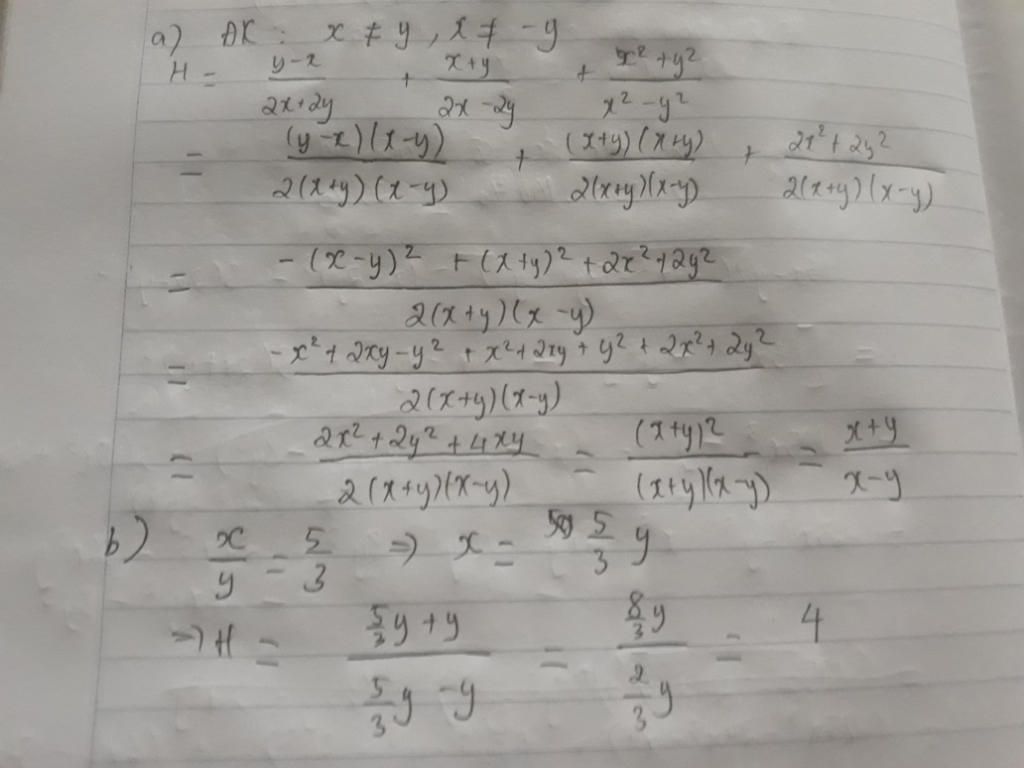 a) ĐK : x ≠ y , x ≠ -y
H = (y-x)/(2x+2y) + (x+y)/(2x-2y) + (x²+y²)/(x²-y²)
= (y-x)(x-y)/2(x+y)(x-y) + (x+y)(x+y)/2(x+y)(x-y) + (2x²+2y²)/2(x+y)(x-y)
= (-(x-y)² + (x+y)² + 2x²+2y²)/2(x+y)(x-y)
= (-x²+2xy-y² + x²+2xy+y² + 2x²+2y²)/2(x+y)(x-y)
= (2x²+2y²+4xy)/2(x+y)(x-y) = (x+y)²/(x+y)(x-y) = (x+y)/(x-y)
b) x/y = 5/3 => x = 5/3 y
=> H = (5/3 y + y)/(5/3 y - y) = (8/3 y)/(2/3 y) = 4